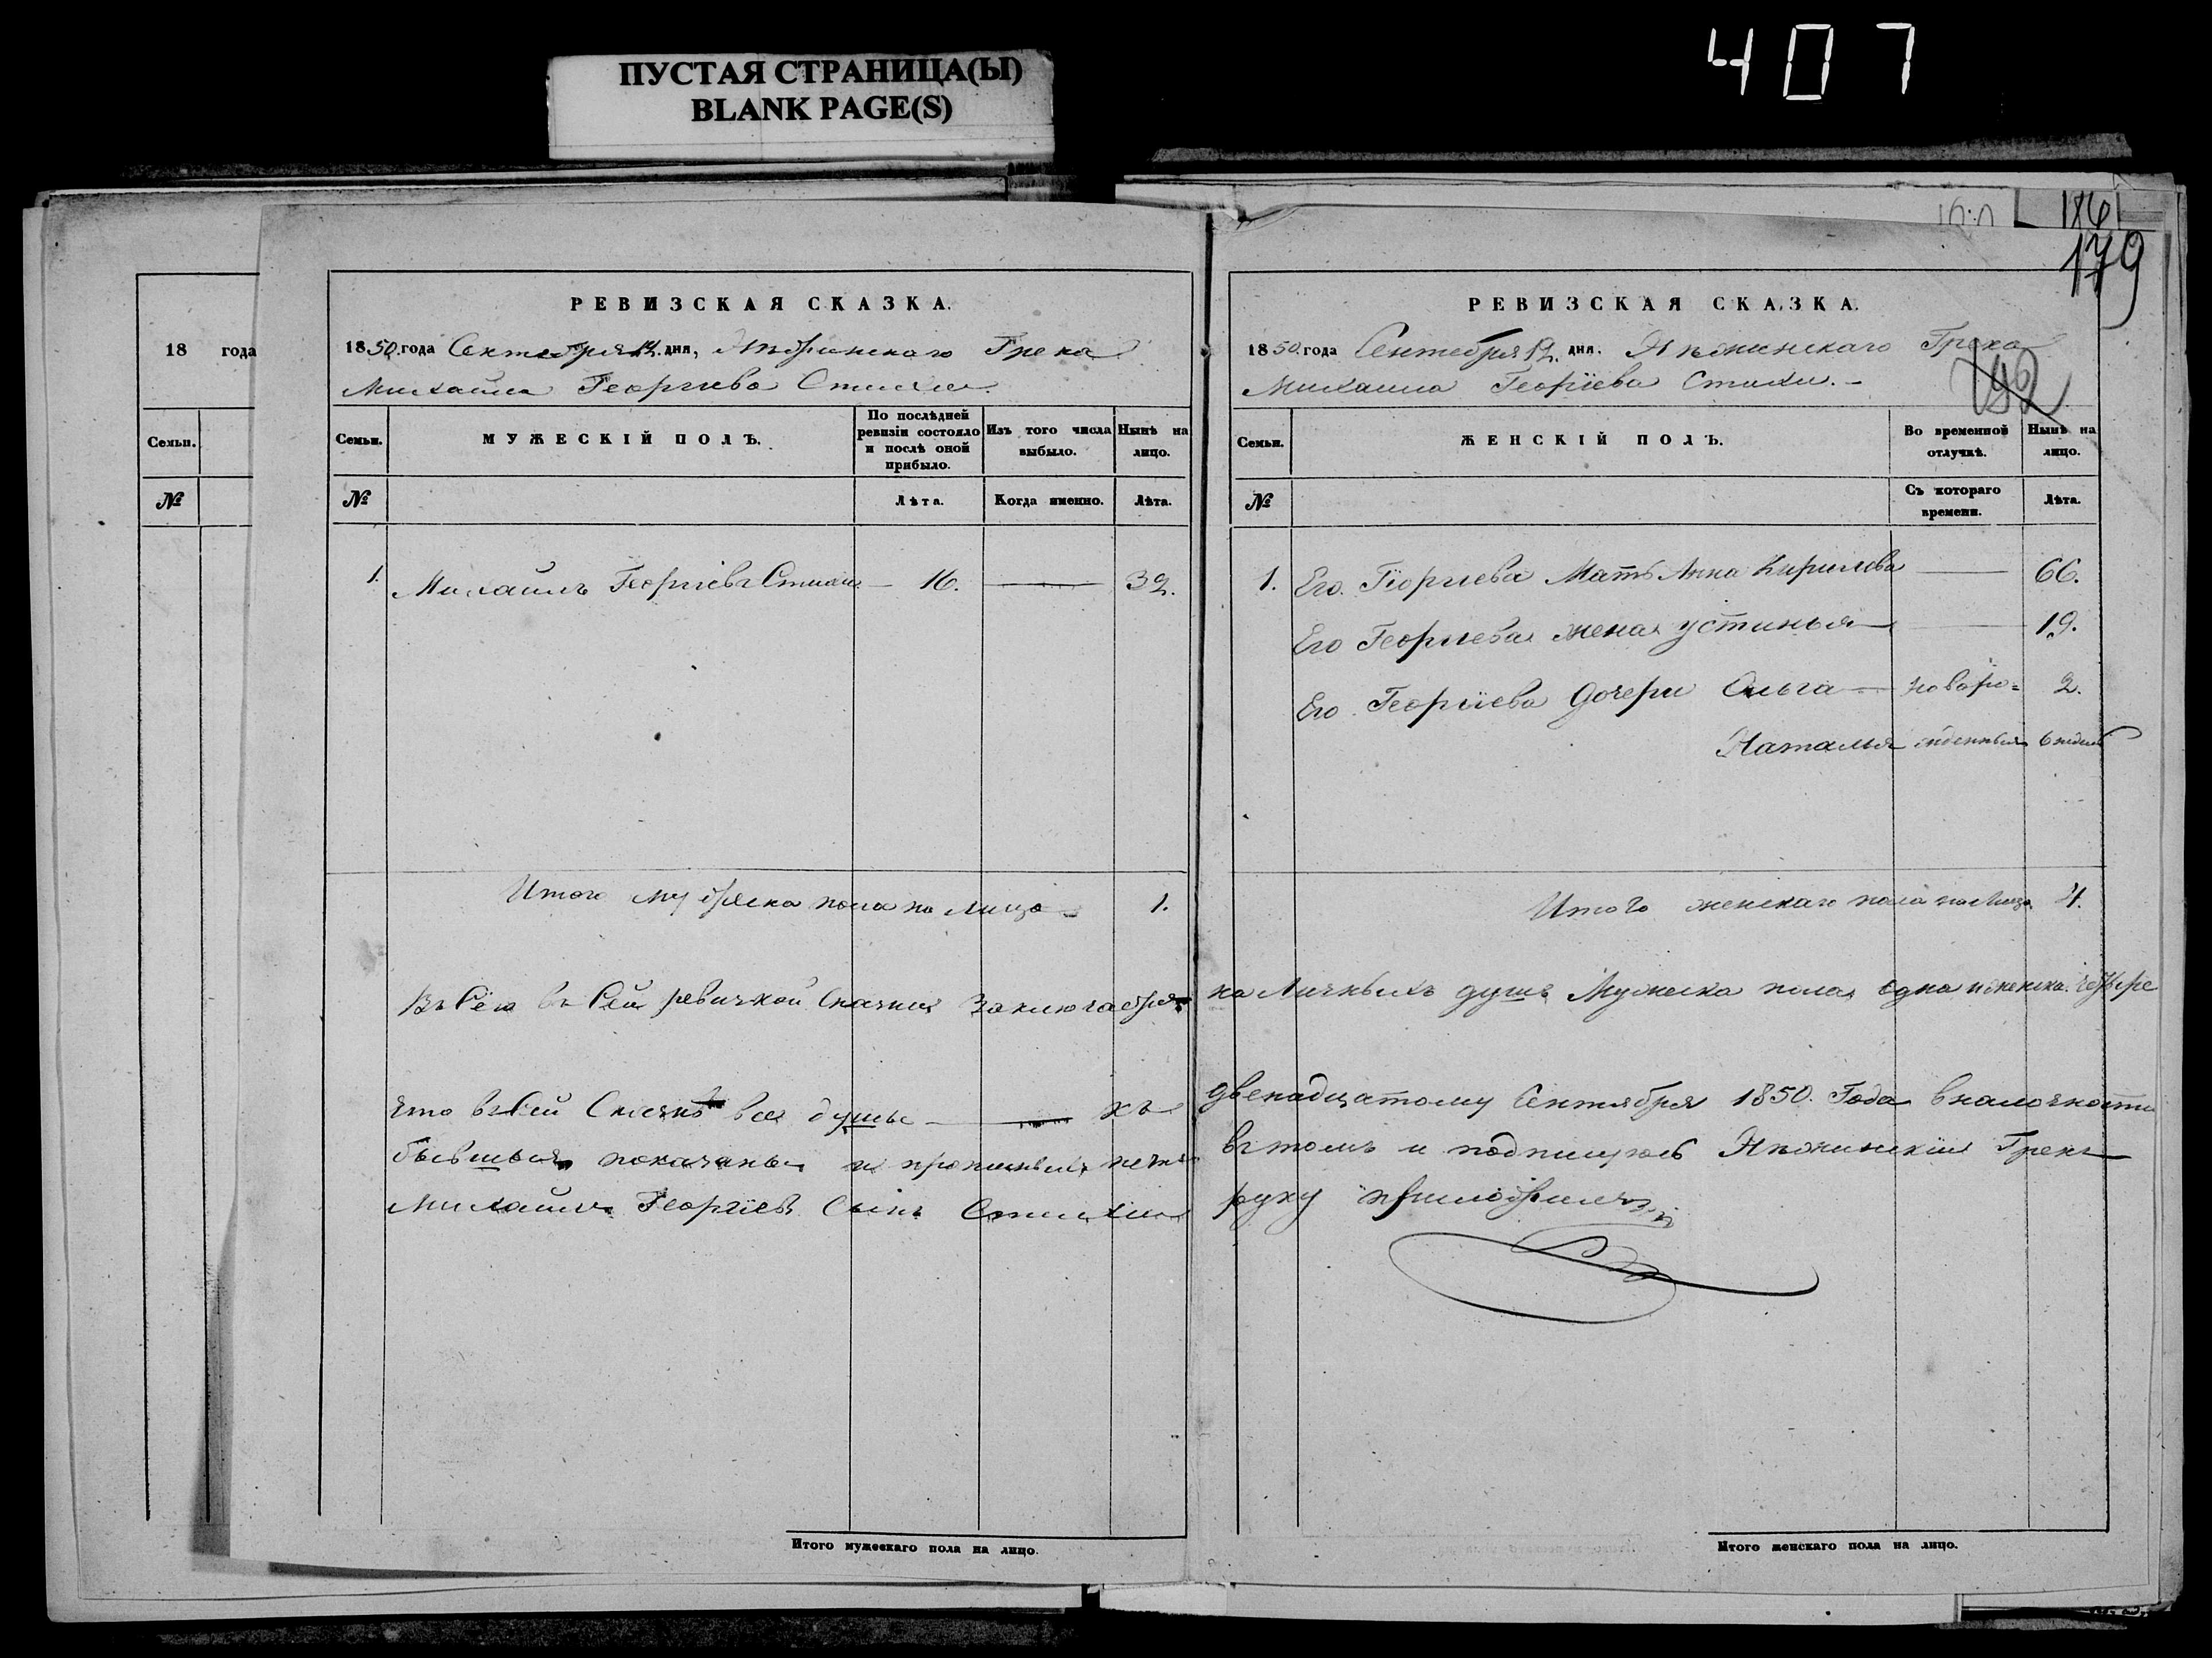 407
ПУСТАЯ СТРАНИЦА(Ы)
BLANK PAGE(S)
186
179
192
18 года
Семьи.
№
РЕВИЗСКАЯ СКАЗКА.
1850 года Сентября 12 дня, Нѣжинскаго Грека
Михаила Георгіева Стахи
Семьи.
МУЖЕСКІЙ ПОЛЪ.
По послѣдней ревизіи состояло и послѣ оной прибыло.
Изъ того числа выбыло.
Нынѣ на лицо.
№
Лѣта.
Когда именно.
Лѣта.
1. Михаилъ Георгіевъ Стахи — 16. — 32.
Итого мужеска пола на лицо 1.
РЕВИЗСКАЯ СКАЗКА.
1850 года Сентября 12. дня. Нѣжинскаго Грека
Михаила Георгіева Стахи. –
Семьи.
ЖЕНСКІЙ ПОЛЪ.
Во временной отлучкѣ.
Нынѣ на лицо.
№
Съ котораго времени.
Лѣта.
1. Его Георгіева Мать Анна Кирилова — 66.
Его Георгіева жена Устинья — 19.
Его Георгіева дочери Ольга — новоро= 2.
Наталья жденныя 6 недель
Итого женскаго пола на лицо 4.
Всего въ сей ревизской сказки заключается на личныхъ душъ Мужеска пола одна и женска четыре
Что въ сей Сказкѣ все души — къ двенадцатому Сентября 1850. Года в наличности
бывшыя показаны и прописныхъ нетъ в томъ и подпишуюсь Нѣжинскій Грекъ
Михаилъ Георгіевъ Сынъ Стахи руку приложилъ
Итого мужескаго пола на лицо.
Итого женскаго пола на лицо.